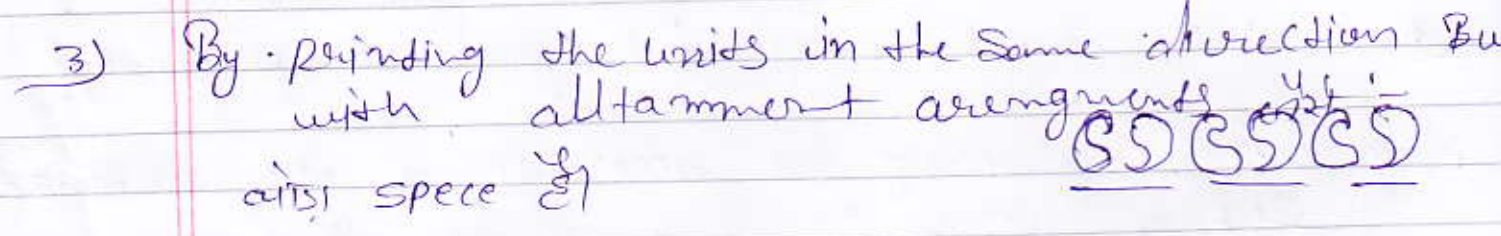 3) By. printing the units in the same direction Bu
with alltamment arengments
थोडा spece है।